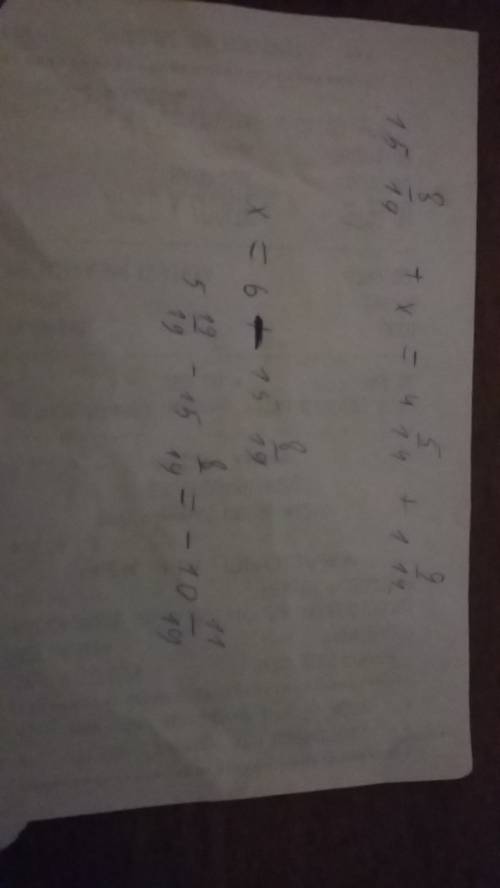 15 8/19 + x = 4 5/14 + 1 9/14
x = 6 - 15 8/19
5 19/19 - 15 8/19 = - 10 11/19